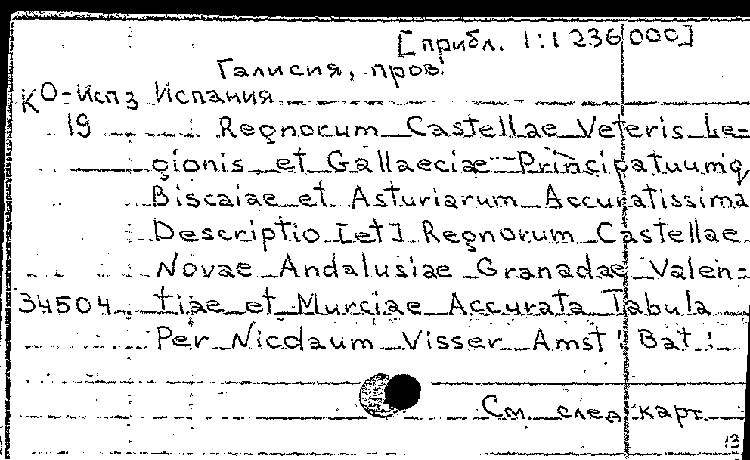 [прибл. 1:1 236 000]
Галисия, пров.
КО-Исп 3 Испания
19 Regnorum Castellae Veteris Le=
gionis et Gallaeciae Principatuumq
Biscaiae et Asturiarum Accuratissima
Descriptio [et] Regnorum Castellae
Novae Andalusiae Granadae Valen=
34504 tiae et Murciae Accurata Tabula
Per Nicolaum Visser Amst! Bat!
См. след. карт.
13